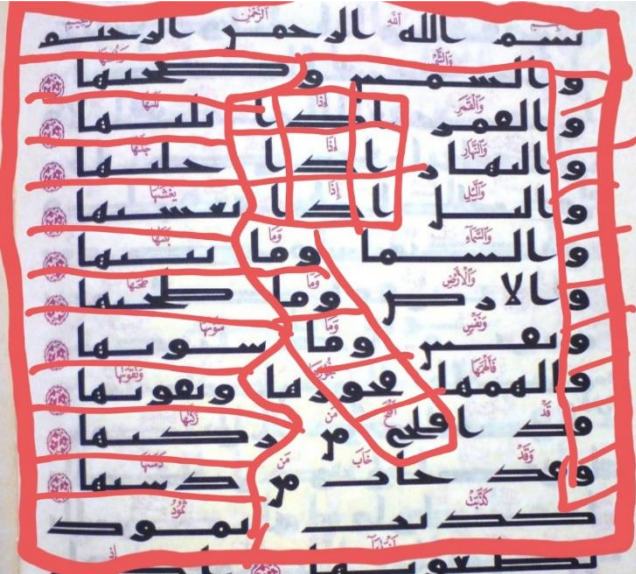 بسم الله الرحمن الرحيم
والشمس وضحيها
والقمر اذا تليها
والنهار اذا جليها
واليل اذا يغشيها
والسما وما بنيها
والارض وما طحيها
ونفس وما سويها
فالهمها فجورها وتقويها
قد افلح من زكيها
وقد خاب من دسيها
كذبت ثمود
بطغويها